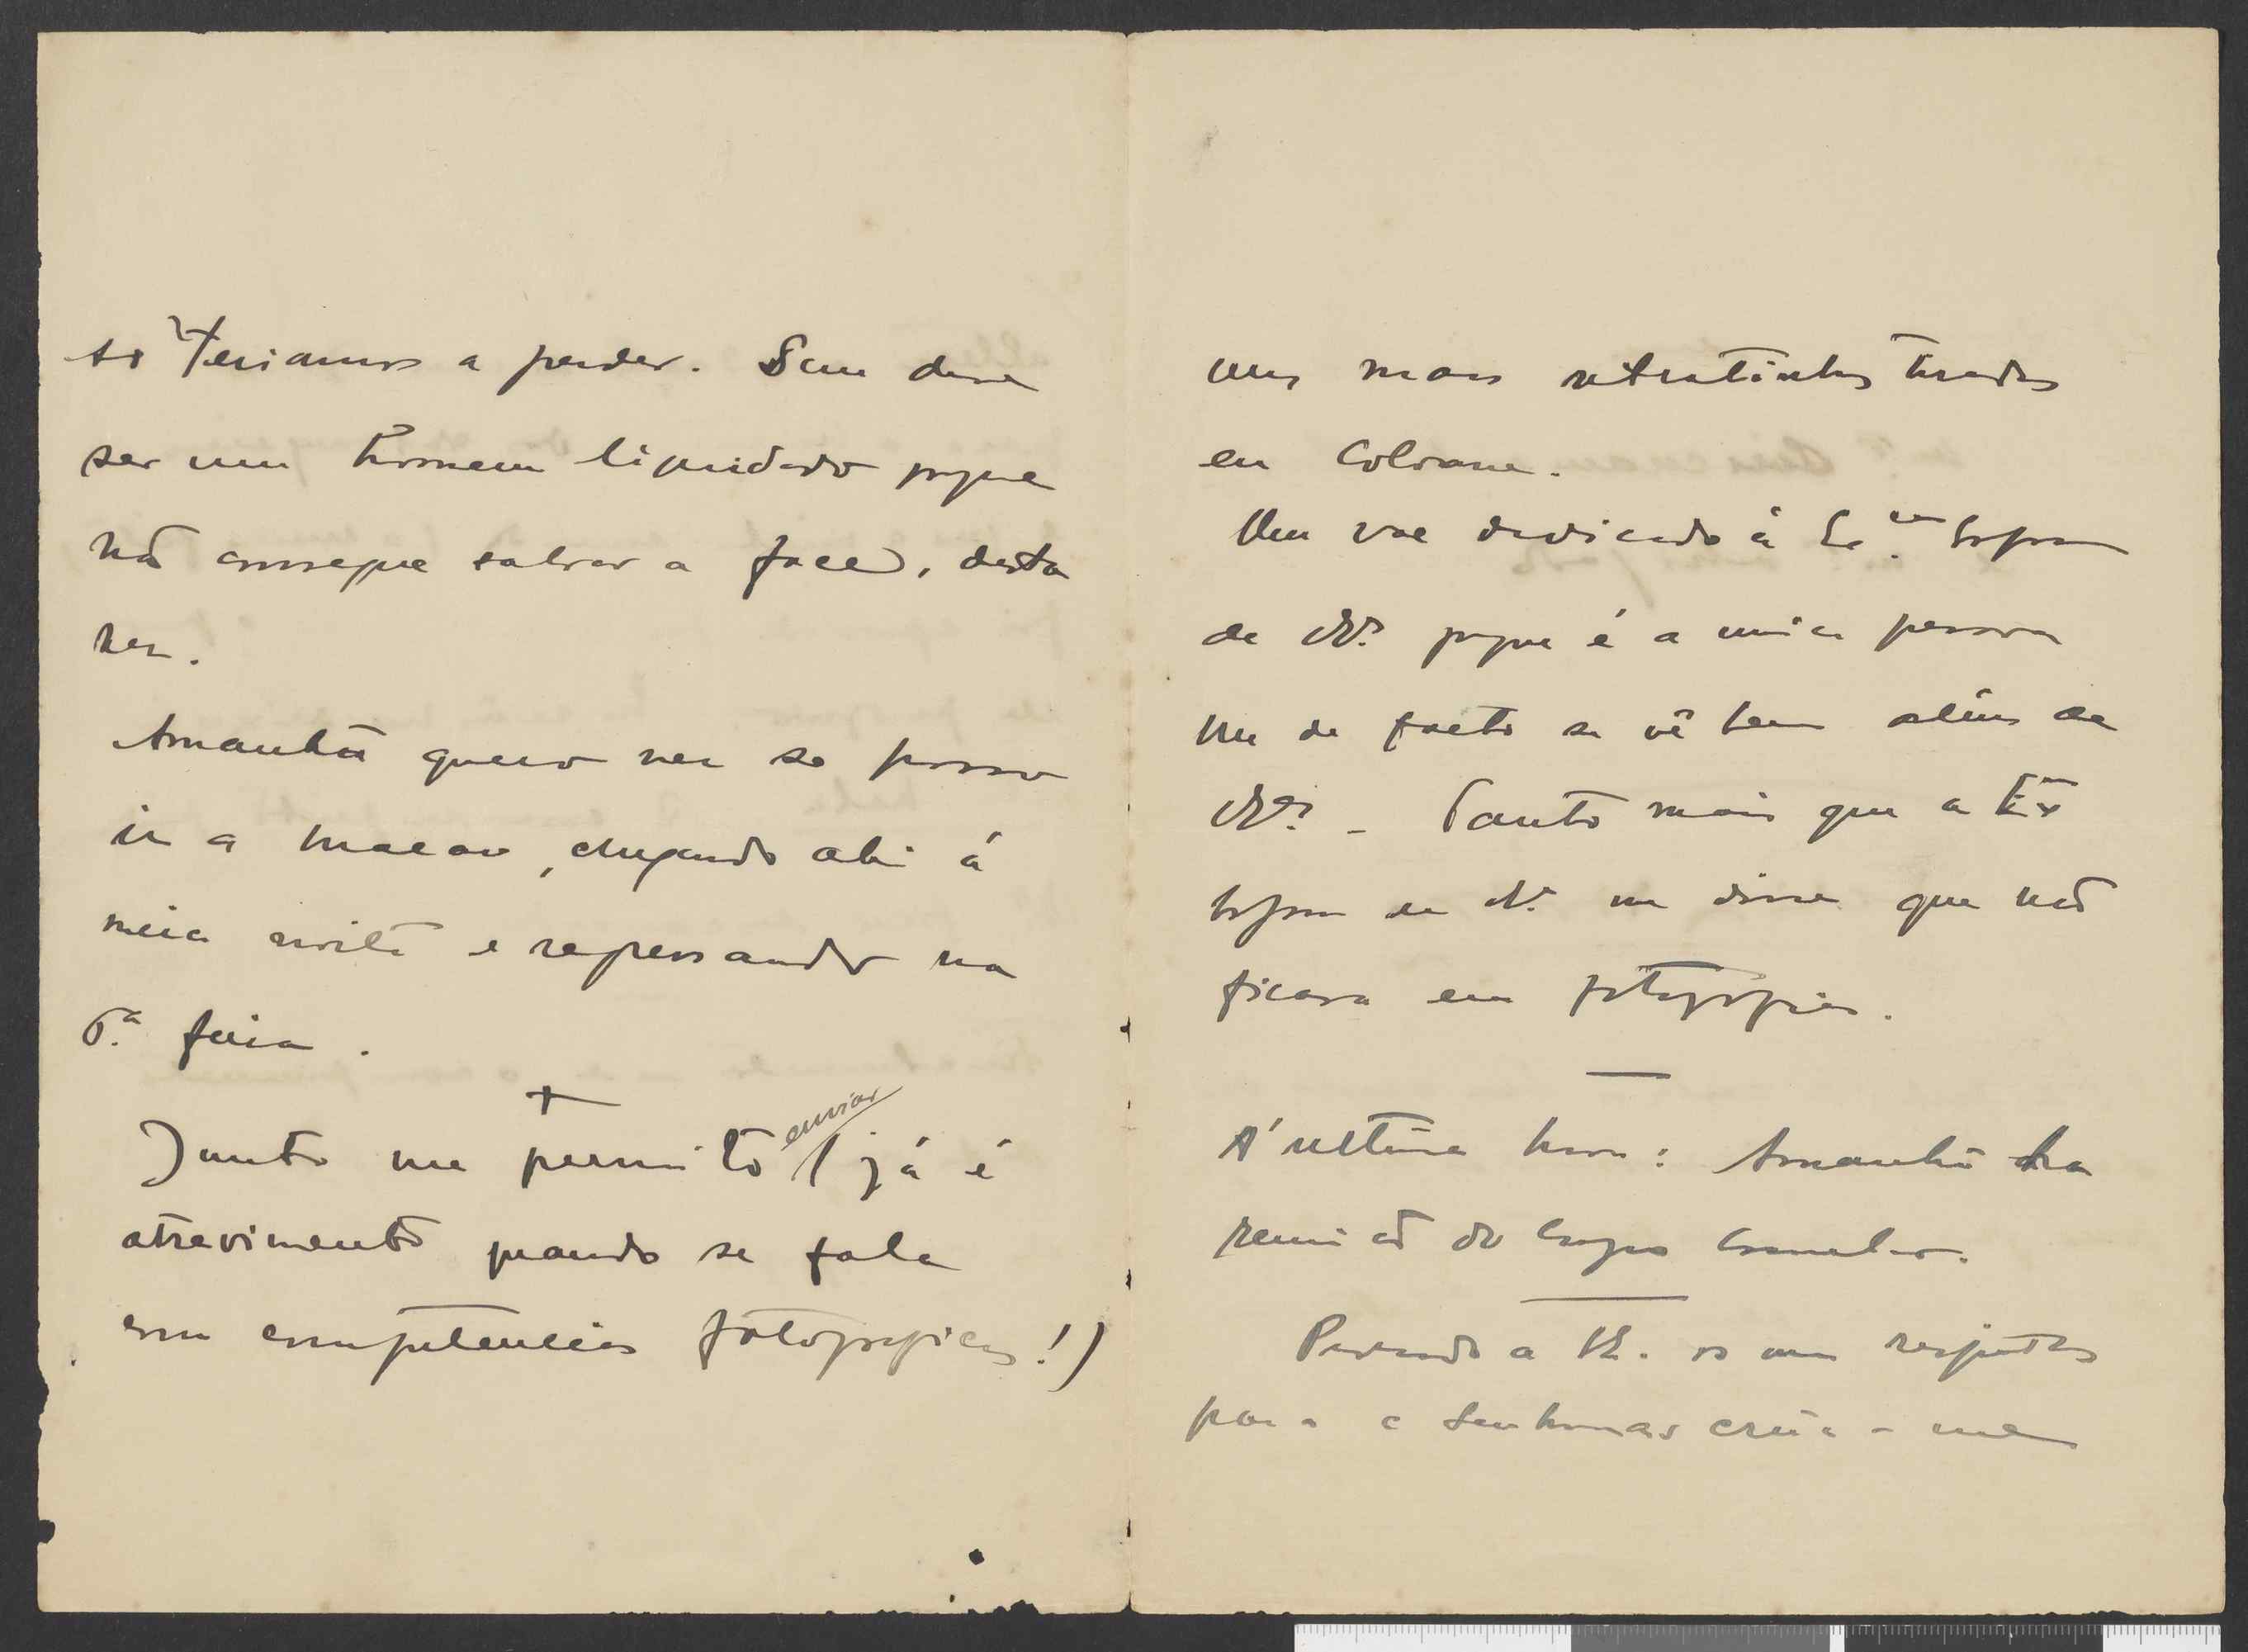 só teriamos a perder. Sun deve
ser um homem liquidado porque
não consegue salvar a face, desta
vez.
Amanhã quero ver se posso
ir a Macao, chegando ahi á
meia noite e regressando na
6.ª feira.
Junto me permito enviar (já é
atrevimento quando se fala
com competencias fotograficas!)
uns mais retratinhos tirados
em Coloane.
Um vae dedicado á Ex.ma
de V. porque é a unica pessoa
que de facto se vê bem além de
V. - Tanto mais que a Ex
de V. me disse que não
ficara em fotografia.
A' ultima hora: Amanhã ha
reunião do Corpo Consular.
Pedindo a V. os meus respeitos
para a Senhora creia-me